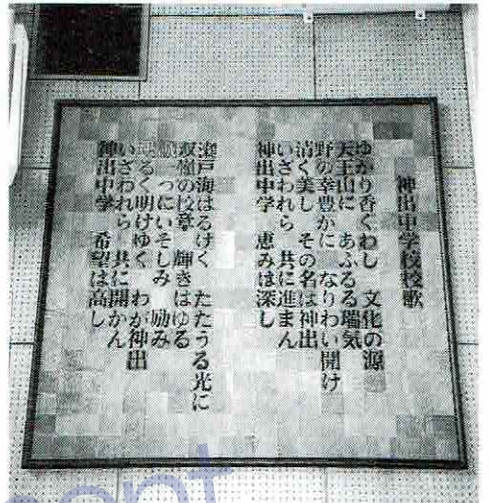 神出中学校校歌
ゆかり香くわし 文化の源
天王山に あふるる瑞気
野の幸豊かに なりわい開け
清く美し その名は神出
いざわれら 共に進まん
神出中学 恵みは深し
瀬戸海はるけく たたうる光に
双嶺の校章 輝きはゆる
つにいそしみ 励み
るく明けゆく わが神出
いざわれら 共に開かん
神出中学 希望は高し